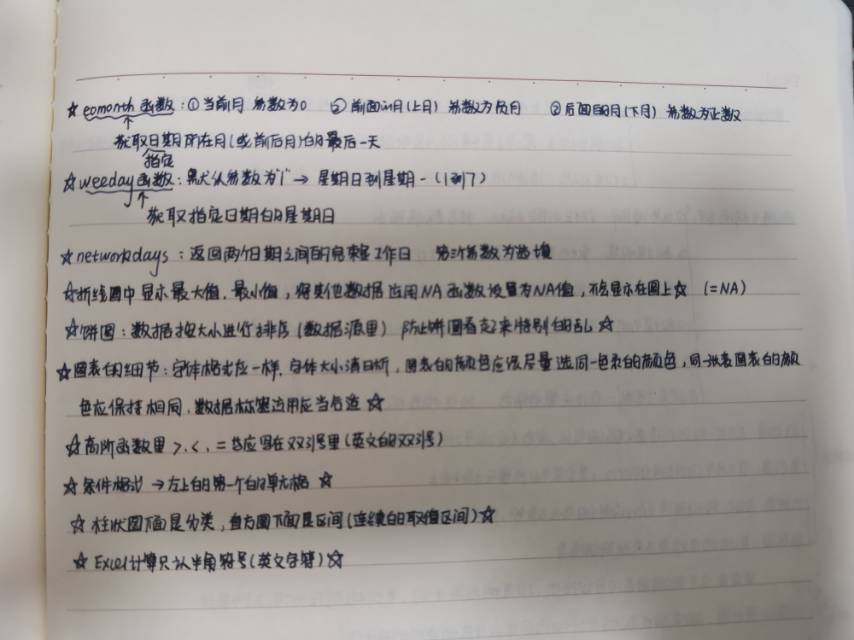 ☆ eomonth函数：①当前月 参数为0 ②前面的月(上月) 参数为负月 ③后面的月(下月) 参数为正数
↑
获取日期所在月(或前后月)的最后一天
指定
☆weeday函数：默认参数为"1" → 星期日到星期一(1到7)
↑
获取指定日期的星期日
☆networkdays：返回两个日期之间的完整工作日 第三参数为
☆折线图中显示最大值、最小值，将其他数据运用NA函数设置为NA值，不会显示在图上☆ (=NA)
☆饼图：数据按大小进行排序(数据源里) 防止饼图看起来特别的乱☆
☆图表的细节：字体格式应一样，字体大小清晰，图表的颜色应该尽量选同一色系的颜色，同一张表图表的颜
色应保持相同，数据标签运用应当合适☆
☆高阶函数里 >、<、=号应写在双引号里(英文的双引号)
☆条件格式 → 左上的第一个的单元格 ☆
☆柱状图下面是分类，直方图下面是区间(连续的取值区间)☆
☆Excel计算只认半角符号(英文字符)☆